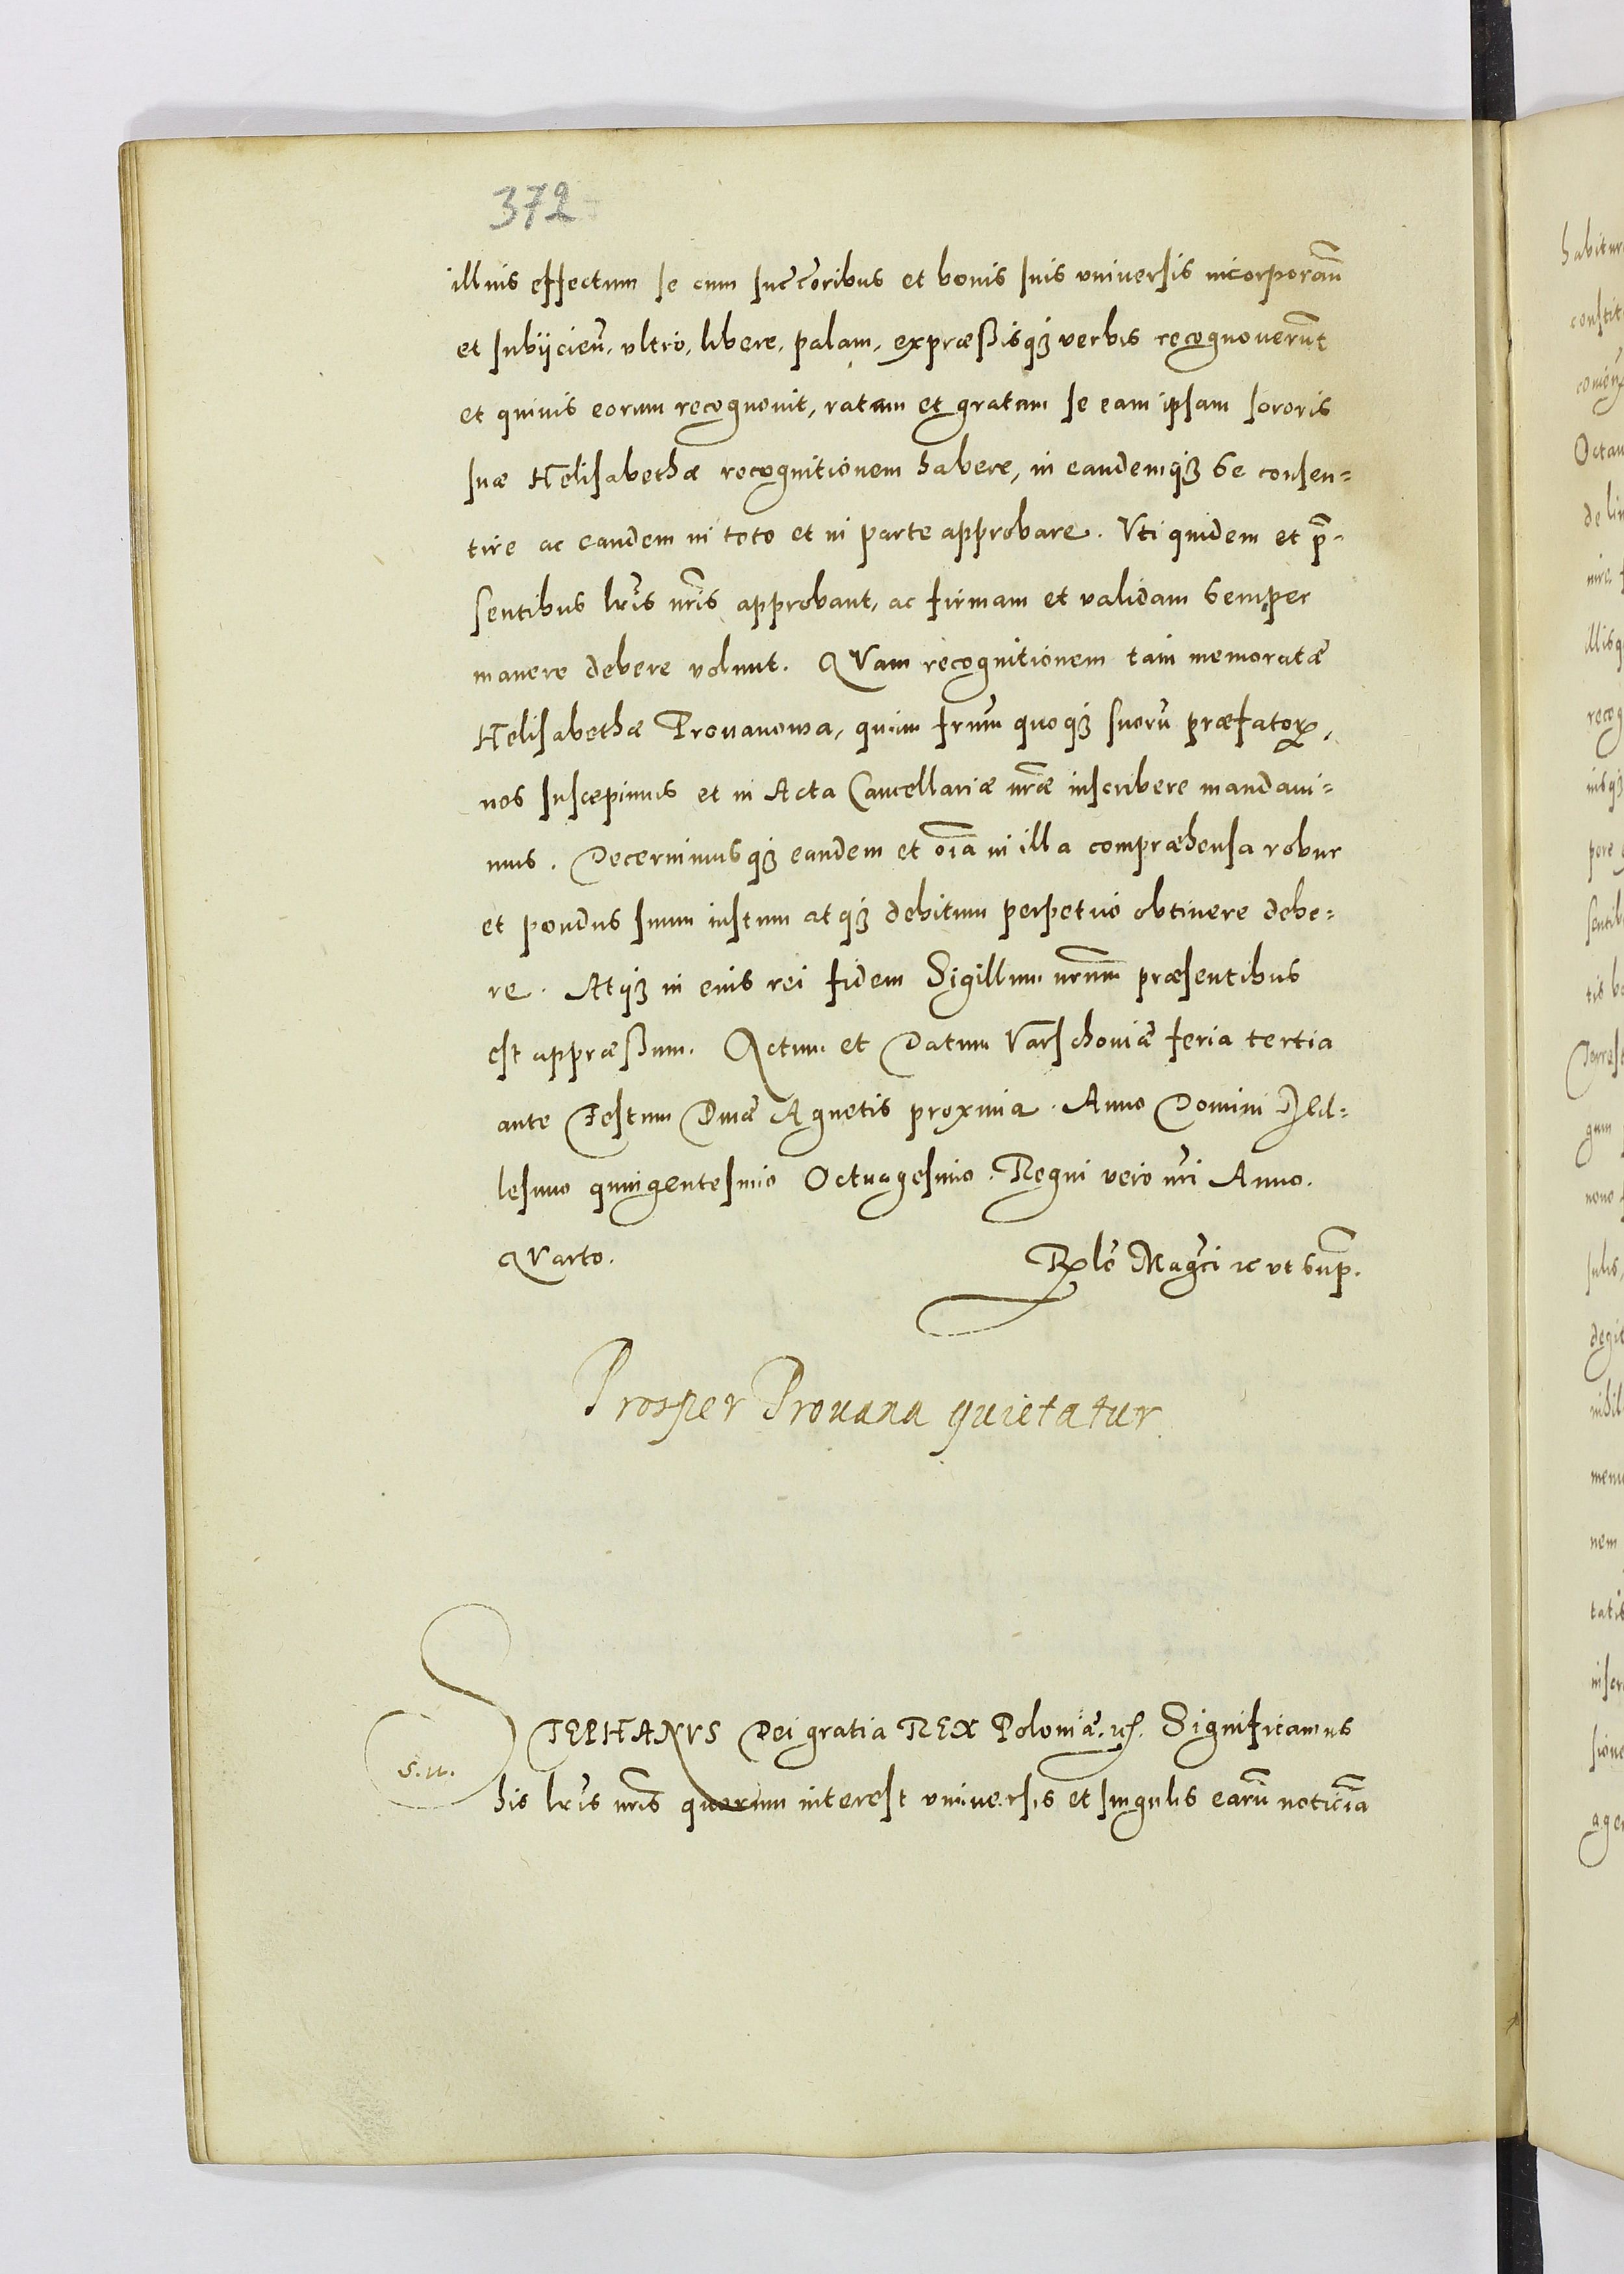 372
illius effectum se cum succõribus et bonis suis vniuersis incorporañ
et subijcieñ. vltro, libere, palam, expræßisq3 verbis recognouerũt
et quiuis eorum recognouit, ratam et gratam se eam ipsam sororis
suæ Helisabethæ recognitionem habere, in eandemq3 se consen=
tire ac eandem in toto et in parte approbare. Vti quidem et p̃=
sentibus lr̃is nr̃is approbant, ac firmam et validam semper
manere debere volunt. QVam recognitionem tam memoratæ
Helisabethæ Prouanowa, quàm fr̃um quoq3 suorũ præfatoꝝ,
nos suscepimus et in Acta Cancellariæ nr̃æ inscribere mandaui=
mus. Decernimusq3 eandem et oĩa in illa compræhensa robur
et pondus suum iustum atq3 debitum perpetuò obtinere debe=
re. Atq3 in eius rei fidem Sigillum nr̃um præsentibus
est appræßum. Actum et Datum Varschouiæ feria tertia
ante Festum Diuæ Agnetis proxima. Anno Domini Mil=
lesimo quingentesimo Octuagesimo. Regni verò nr̃i Anno.
QVarto.
Rlõ Magc̃i ꝛc vt sup̃.
Prosper Prouana quietatur
STEPHANVS Dei gratia REX Poloniæ. ꝛc. Significamus
S. N.
his lr̃is nr̃is quorum interest vniuersis et singulis earũ noticĩa